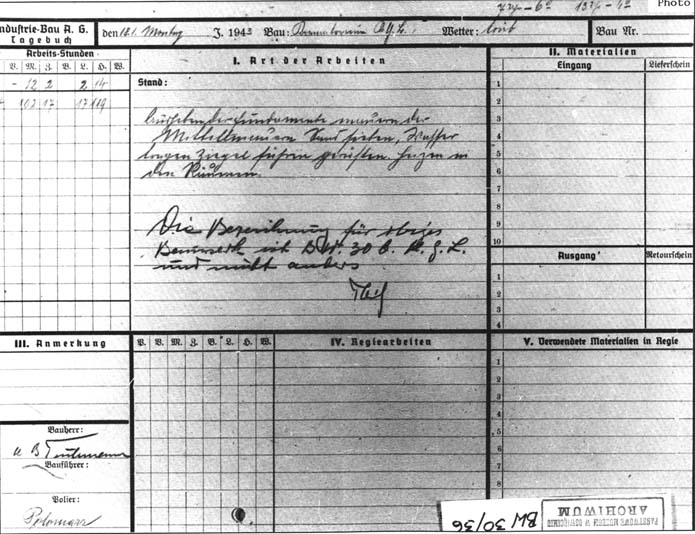 Photo
ndustrie-Bau A. G.
Tagebuch
den 18.1. Montag J. 1943 Bau: Krematorium K.G.L. Wetter: trüb Bau Nr.
Arbeits-Stunden
P. M. Z. B. L. H. W.
- 12 2 2 14
I. Art der Arbeiten
Stand:
der Fundamente mauern der
Mittelmauern Sand sieben, Wasser
tragen Ziegel heizen in
den Räumen.
Die Bezeichnung für obiges
Bauwerk ist BW. 30 b. K. g. L.
und nicht anders
II. Materialien
Eingang Lieferschein
1
2
3
4
5
6
7
8
9
10
Ausgang Retourschein
1
2
3
4
III. Anmerkung
Bauherr:
Bauführer:
Polier:
P. V. M. Z. B. L. H. W.
IV. Regiearbeiten
V. Verwendete Materialien in Regie
1
2
3
4
5
6
7
8
BW 30/36
PAŃSTWOWE MUZEUM W OŚWIĘCIMIU
ARCHIWUM